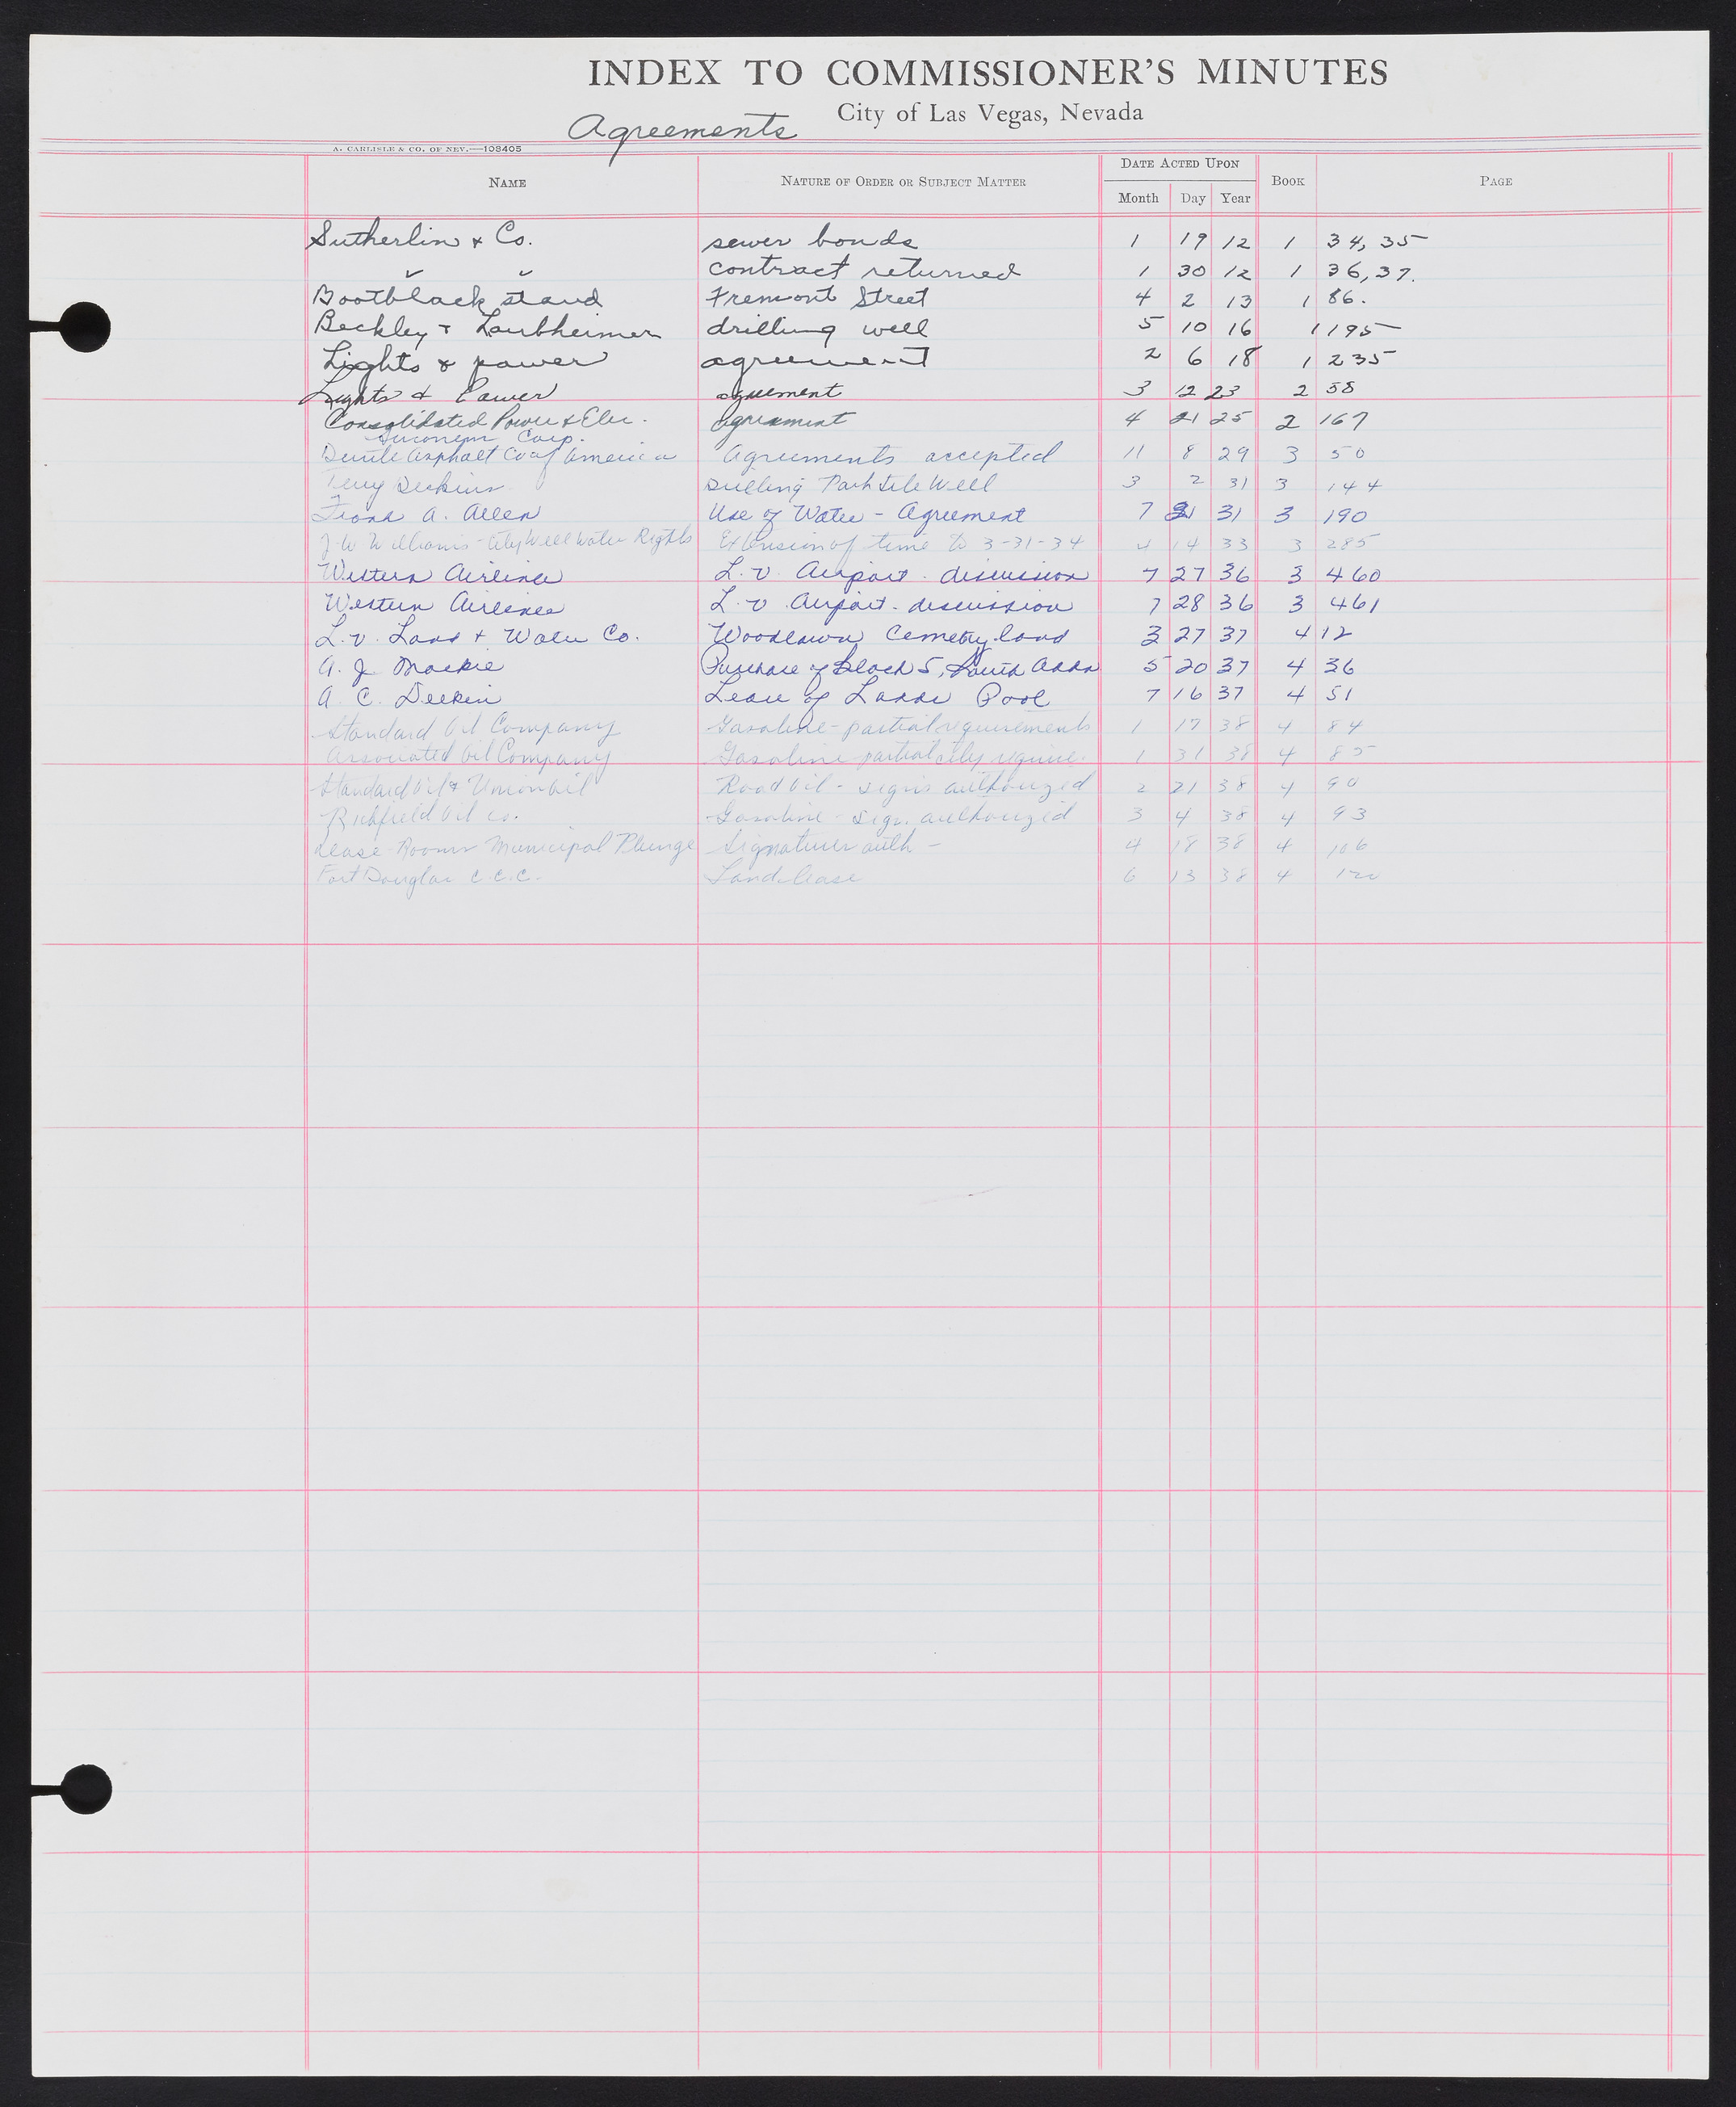 INDEX TO COMMISSIONER'S MINUTES
City of Las Vegas, Nevada
Agreements
A. CARLISLE & CO. OF NEV.—108405
NAME NATURE OF ORDER OR SUBJECT MATTER DATE ACTED UPON BOOK PAGE
Month Day Year
Sutherlin & Co. sewer bonds 1 19 12 1 34, 35
" " contract returned 1 30 12 1 36, 37.
Bootblack stand Fremont Street 4 2 13 1 86.
Beckley & Laubheimer drilling well 5 10 16 1 195
Lights & power agreement 2 6 18 1 235
Lights & Power agreement 3 12 23 2 58
Consolidated Power & Elec. agreement 4 21 25 2 167
Corp.
Asphalt Co of America Agreements accepted 11 8 29 3 50
Drilling Park Site Well 3 2 31 3 144
Frank A. Allen Use of Water - Agreement 7 31 3 190
J. W Williams - City Well Water Rights Extension of time to 3-31-34 4 14 33 3 285
Western Airlines L. V. Airport - discussion 7 27 36 3 460
Western Airlines L. V. Airport - discussion 7 28 36 3 461
L. V. Land & Water Co. Woodlawn Cemetery land 3 27 37 4 12
A. J. Mackie Purchase of Block 5, South Addn 5 20 37 4 36
A. C. Delkin Lease of Pool 7 16 37 4 51
Standard Oil Company Gasoline - partial requirements 1 17 38 4 84
Associated Oil Company Gasoline partial city require. 1 31 38 4 85
Standard Oil & Union Oil Road Oil - signs authorized 2 21 38 4 90
Richfield Oil co. Gasoline - sign. authorized 3 4 38 4 93
Lease - Rooms Municipal Plunge Signatures auth - 4 18 38 4 106
Fort Douglas C.C.C. Land lease 6 13 38 4 120